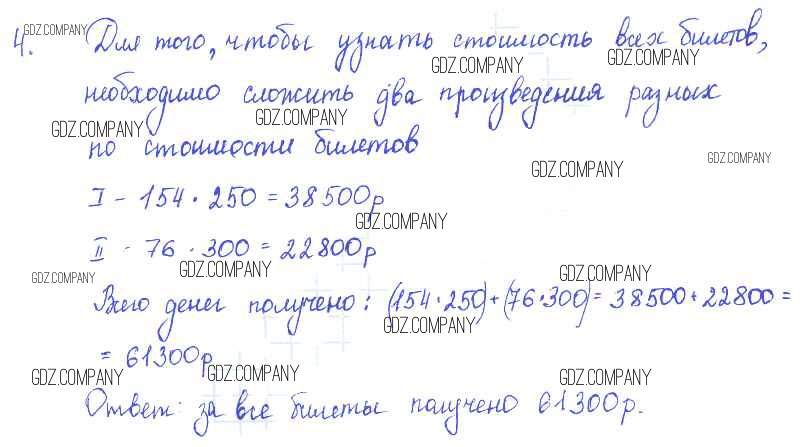 GDZ.COMPANY
4. Для того, чтобы узнать стоимость всех билетов,
GDZ.COMPANY GDZ.COMPANY
необходимо сложить два произведения разных
GDZ.COMPANY GDZ.COMPANY
по стоимости билетов
GDZ.COMPANY GDZ.COMPANY
I - 154 · 250 = 38500р
GDZ.COMPANY
II - 76 · 300 = 22800р
GDZ.COMPANY GDZ.COMPANY GDZ.COMPANY
Всего денег получено: (154·250)+(76·300)= 38500+22800 =
GDZ.COMPANY
= 61300р
GDZ.COMPANY GDZ.COMPANY GDZ.COMPANY
Ответ: за все билеты получено 61300р.